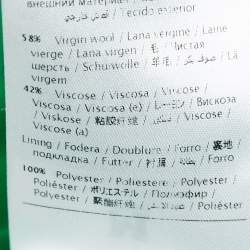 внешний материал /
قماش خارجي / Tecido exterior
58% Virgin wool / Lana vergine / Laine
vierge / Lana virgen / 毛 / Чистая
шерсть / Schurwolle / 羊毛 / صوف بكر / Lã
virgem
42% Viscose / Viscosa / Viscose /
Viscosa / Viscosa (e) / レーヨン / Вискоза
/ Viskose / 粘胶纤维 / فيسكوز / Viscose /
Viscose (a)
Lining / Fodera / Doublure / Forro / 裏地 /
подкладка / Futter / 衬层 / بطانة / Forro
100% Polyester / Poliestere / Polyester /
Poliéster / ポリエステル / Полиэфир /
Polyester / 聚酯纤维 / بوليستر /
Poliéster